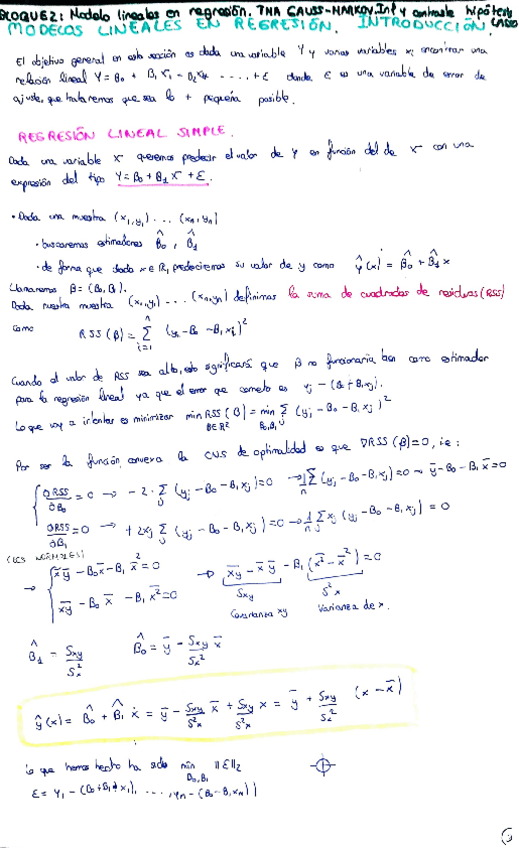 BLOQUE 2: Modelo lineales en regresión. TMA GAUSS-MARKOV. Inf y contraste hipótesis
MODELOS LINEALES EN REGRESIÓN. INTRODUCCIÓN.
El objetivo general en esta sección es dada una variable Y y varias variables xi encontrar una
relación lineal Y = B₀ + B₁x₁ - B₂x₂ - .... + ε donde ε es una variable de error de
ajuste, que trataremos que sea lo + pequeña posible.
REGRESIÓN LINEAL SIMPLE.
Dada una variable x queremos predecir el valor de Y en función del de x con una
expresión del tipo Y = B₀ + B₁x + ε.
• Dada una muestra (x₁, y₁) ... (xₙ, yₙ)
• buscaremos estimadores B̂₀, B̂₁
• de forma que dado x ∈ ℝ, predeciremos su valor de y como ŷ(x) = B̂₀ + B̂₁x
Llamaremos β = (B₀, B₁).
Dada nuestra muestra (x₁, y₁) ... (xₙ, yₙ) definimos la suma de cuadrados de residuos (RSS)
como RSS(β) = Σⁿᵢ₌₁ (yᵢ - B₀ - B₁xᵢ)²
Cuando el valor de RSS sea alto, esto significará que β no funcionaría bien como estimador
para la regresión lineal ya que el error que comete es yⱼ - (B₀ + B₁xⱼ).
Lo que voy a intentar es minimizar min_{β∈ℝ²} RSS(β) = min_{B₀,B₁} Σⱼ (yⱼ - B₀ - B₁xⱼ)²
Por ser la función convexa la CNS de optimalidad es que ∇RSS(β) = 0, ie:
∂RSS/∂B₀ = 0 → -2 · Σⱼ (yⱼ - B₀ - B₁xⱼ) = 0 → 1/n Σⱼ (yⱼ - B₀ - B₁xⱼ) = 0 → ȳ - B₀ - B₁x̄ = 0
∂RSS/∂B₁ = 0 → + 2xⱼ Σⱼ (yⱼ - B₀ - B₁xⱼ) = 0 → 1/n Σⱼ xⱼ (yⱼ - B₀ - B₁xⱼ) = 0
(ECS NORMALES)
→ { x̄ȳ - B₀x̄ - B₁x̄² = 0 → x̄y̅ - x̄ ȳ - B₁ (x̅²̅ - x̄²) = 0
x̅y̅ - B₀x̄ - B₁x̅²̅ = 0
Sxy S²x
Covarianza xy Varianza de x.
B̂₁ = Sxy/Sx² B̂₀ = ȳ - Sxy/Sx² x̄
ŷ(x) = B̂₀ + B̂₁ x = ȳ - Sxy/S²x x̄ + Sxy/S²x x = ȳ + Sxy/Sx² (x - x̄)
Lo que hemos hecho ha sido min_{B₀,B₁} ||ε||₂
ε = y₁ - (B₀ + B₁x₁), ..., yₙ - (B₀ - B₁xₙ))